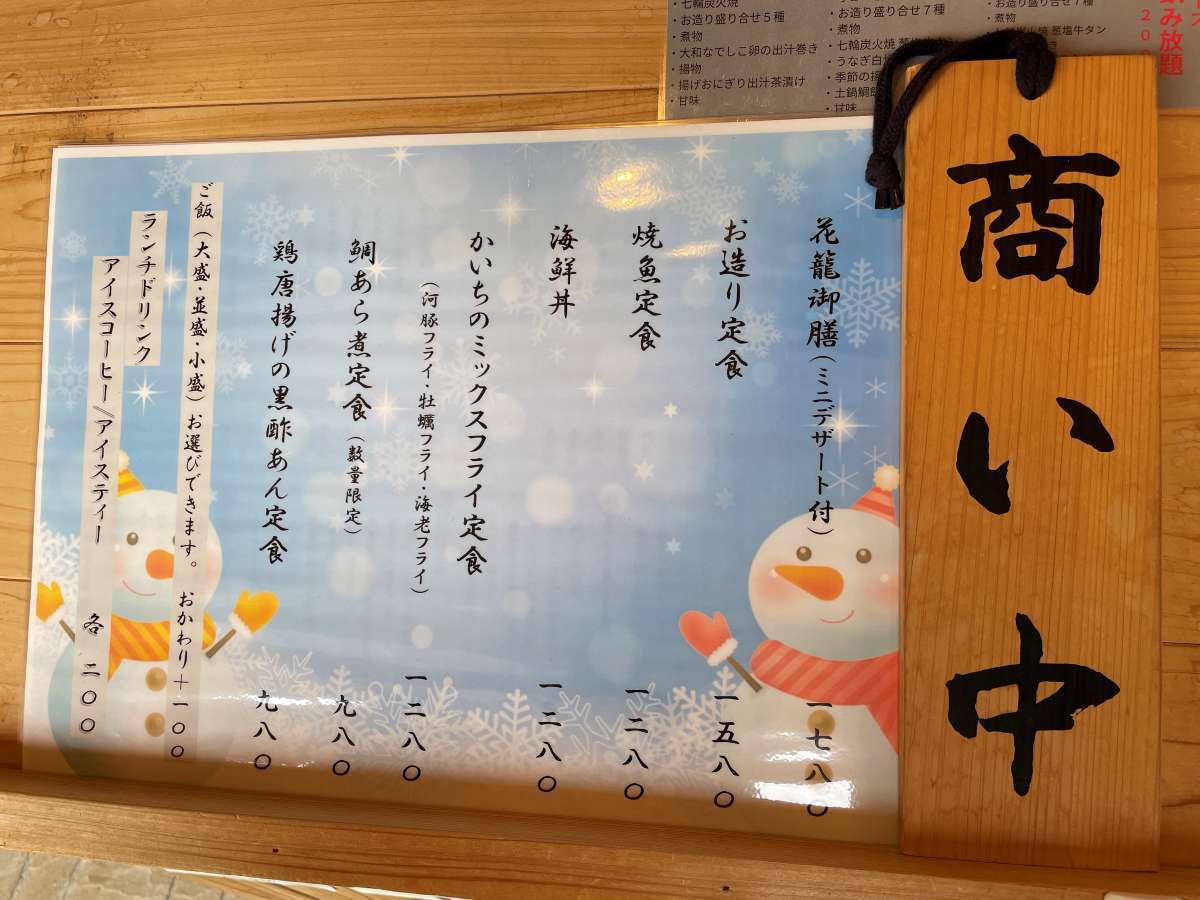 ・七輪炭火焼
・お造り盛り合せ５種
・煮物
・大和なでしこ卵の出汁巻き
・揚物
・揚げおにぎり出汁茶漬け
・甘味
・お造り盛り合せ７種
・煮物
・七輪炭火焼
・うなぎ白焼
・季節の
・土鍋鯛
・甘味
・煮物
葱塩牛タン
飲み放題
商い中
花籠御膳（ミニデザート付） 一七八〇
お造り定食 一五八〇
焼魚定食 一二八〇
海鮮丼 一二八〇
かいちのミックスフライ定食
（河豚フライ・牡蠣フライ・海老フライ） 一二八〇
鯛あら煮定食（数量限定） 九八〇
鶏唐揚げの黒酢あん定食 九八〇
ご飯（大盛・並盛・小盛）お選びできます。 おかわり＋一〇〇
ランチドリンク
アイスコーヒー／／アイスティー 各 二〇〇